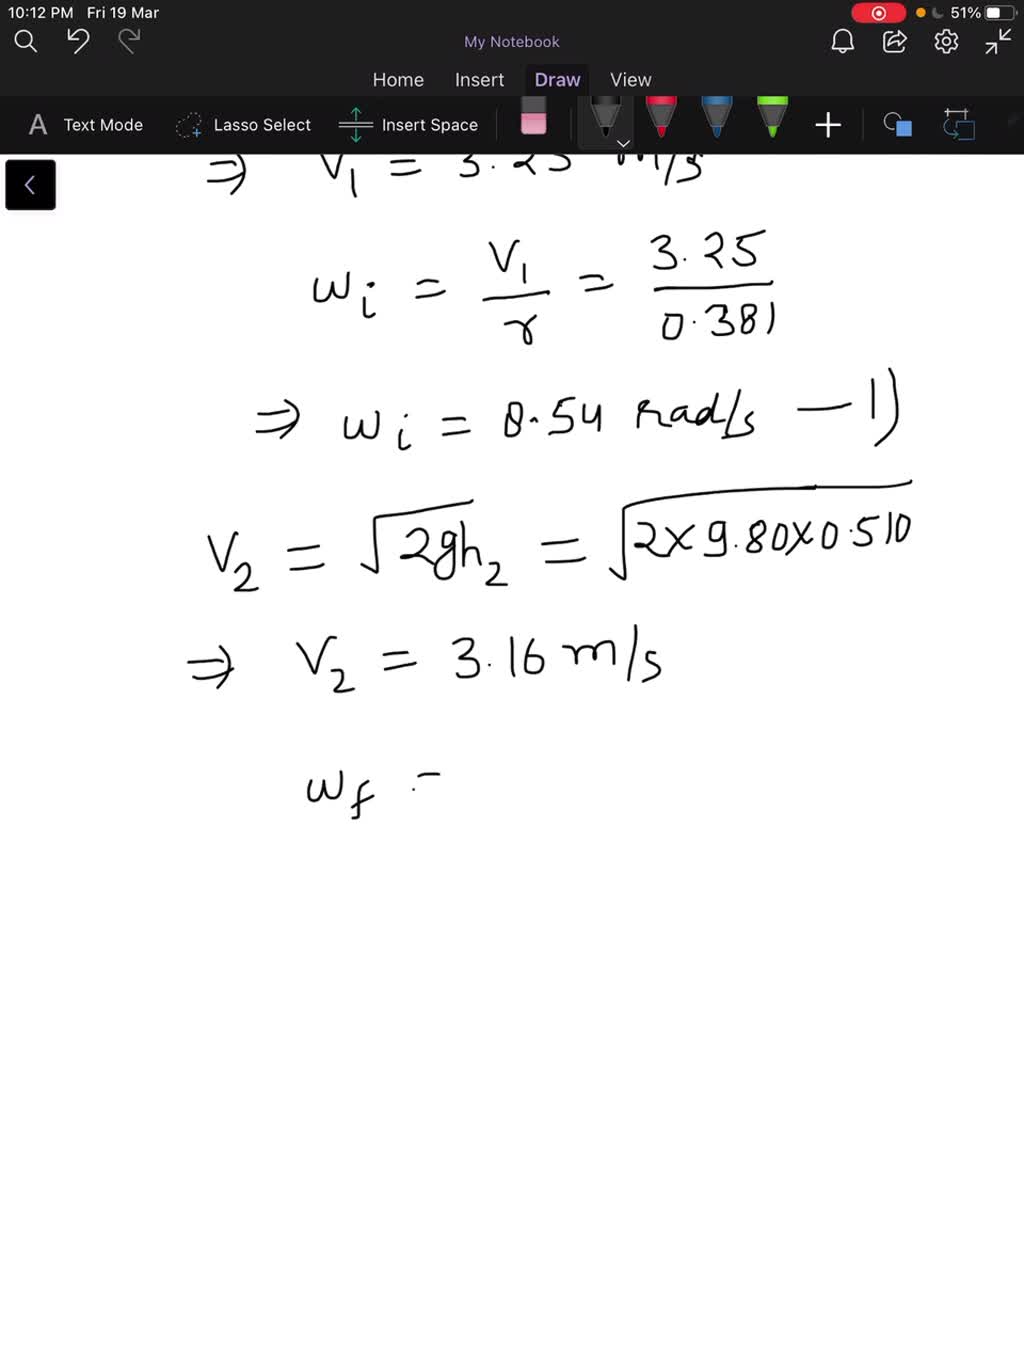 10:12 PM Fri 19 Mar 51%
My Notebook
Home Insert Draw View
A Text Mode Lasso Select Insert Space
⇒ V₁ = 3.25 m/s
ω_i = V₁/r = 3.25/0.381
⇒ ω_i = 8.54 rad/s — 1)
V₂ = √(2gh₂) = √(2×9.80×0.510)
⇒ V₂ = 3.16 m/s
ω_f =